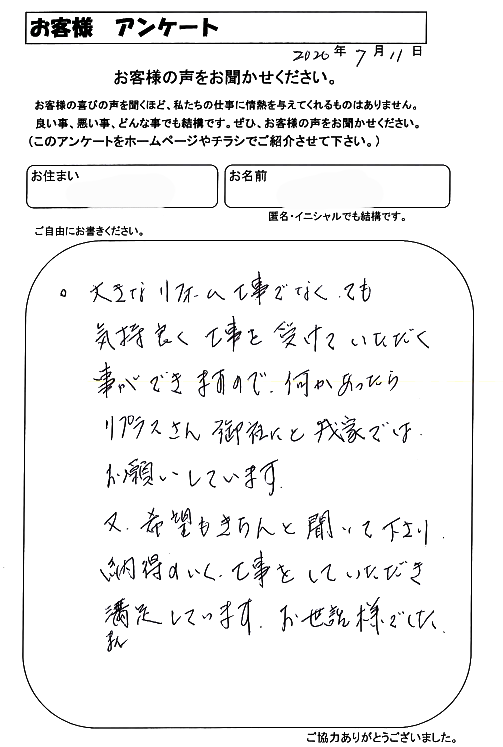 お客様 アンケート
2020年 7月 11日
お客様の声をお聞かせください。
お客様の喜びの声を聞くほど、私たちの仕事に情熱を与えてくれるものはありません。
良い事、悪い事、どんな事でも結構です。ぜひ、お客様の声をお聞かせください。
(このアンケートをホームページやチラシでご紹介させて下さい。)
お住まい
お名前
匿名・イニシャルでも結構です。
ご自由にお書きください。
○ 大きなリフォーム工事でなくても
気持良く工事を受けていただく
事ができますので、何かあったら
リプラスさん御社にと我家では
お願いしています。
又、希望もきちんと聞いて下さり、
納得のいく工事をしていただき
満足しています。お世話様でした。
まん
ご協力ありがとうございました。